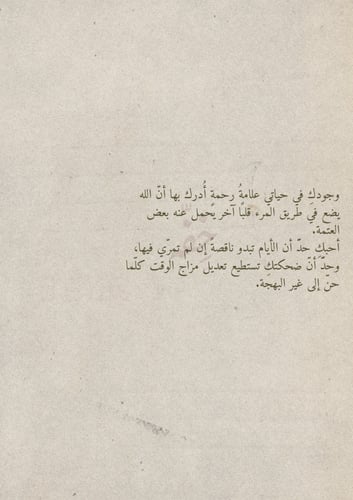 وجودكِ في حياتي علامةُ رحمةٍ أُدرك بها أنّ الله
يضع في طريق المرء قلبًا آخر يحمل عنه بعض
العتمة.
أحبكِ حدّ أن الأيام تبدو ناقصةً إن لم تمرّي فيها،
وحدّ أنّ ضحكتكِ تستطيع تعديل مزاج الوقت كلّما
حنّ إلى غير البهجة.